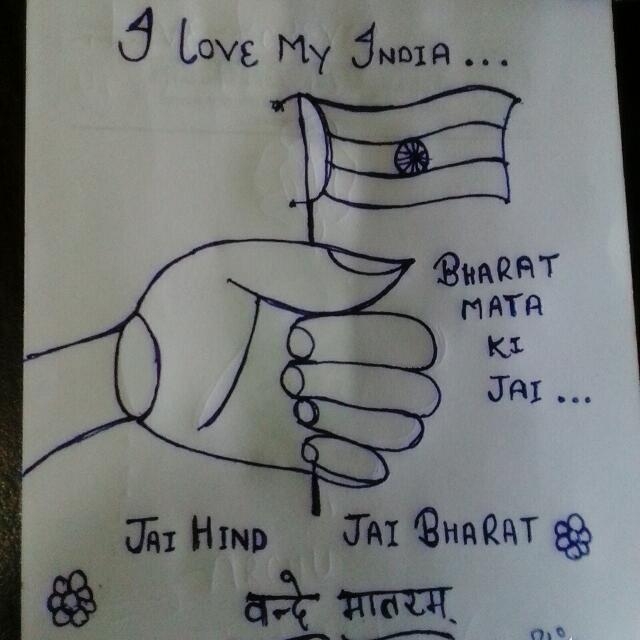 I LOVE MY INDIA ...
BHARAT
MATA
KI
JAI ...
JAI HIND JAI BHARAT
वन्दे मातरम्